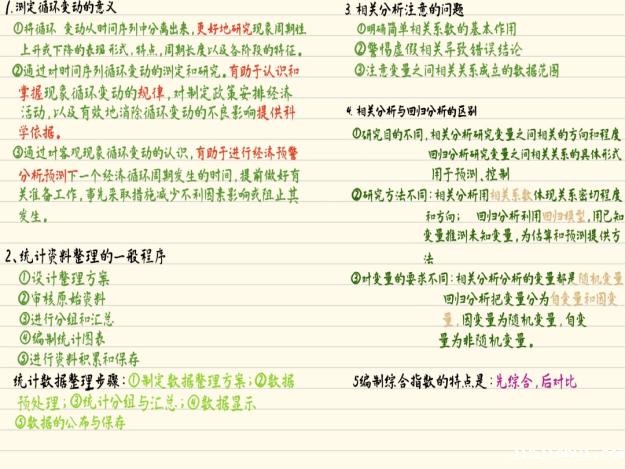 1.测定循环变动的意义
①将循环 变动从时间序列中分离出来,更好地研究现象周期性
上升或下降的表现形式,特点,周期长度以及各阶段的特征。
②通过对时间序列循环变动的测定和研究。有助于认识和
掌握现象循环变动的规律,对制定政策安排经济
活动,以及有效地消除循环变动的不良影响提供科
学依据。
③通过对客观现象循环变动的认识,有助于进行经济预警
分析预测下一个经济循环周期发生的时间,提前做好有
关准备工作,事先采取措施减少不利因素影响或阻止其
发生。
2、统计资料整理的一般程序
①设计整理方案
②审核原始资料
③进行分组和汇总
④编制统计图表
⑤进行资料积累和保存
统计数据整理步骤:①制定数据整理方案;②数据
预处理;③统计分组与汇总;④数据显示
⑤数据的公布与保存
3.相关分析注意的问题
①明确简单相关系数的基本作用
②警惕虚假相关导致错误结论
③注意变量之间相关关系成立的数据范围
4.相关分析与回归分析的区别
①研究目的不同,相关分析研究变量之间相关的方向和程度
回归分析研究变量之间相关关系的具体形式
用于预测,控制
②研究方法不同:相关分析用相关系数体现关系密切程度
和方向; 回归分析利用回归模型,用已知
变量推测未知变量,为估算和预测提供方
法
③对变量的要求不同:相关分析分析的变量都是随机变量
回归分析把变量分为自变量和因变
量,因变量为随机变量,自变
量为非随机变量。
5编制综合指数的特点是:先综合,后对比